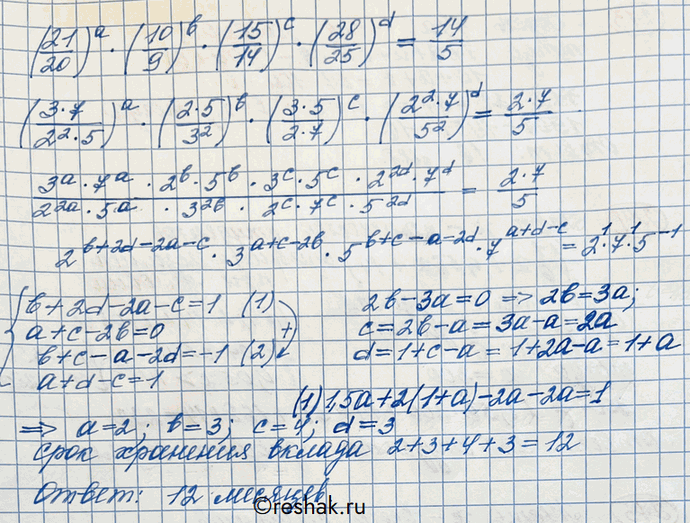 (21/20)^a · (10/9)^b · (15/14)^c · (28/25)^d = 14/5
(3·7/2²·5)^a · (2·5/3²)^b · (3·5/2·7)^c · (2²·7/5²)^d = 2·7/5
3^a · 7^a · 2^b · 5^b · 3^c · 5^c · 2^2d · 7^d / 2^2a · 5^a · 3^2b · 2^c · 7^c · 5^2d = 2·7/5
2^b+2d-2a-c · 3^a+c-2b · 5^b+c-a-2d · 7^a+d-c = 2^1·7^1·5^-1
{ b+2d-2a-c=1 (1)
a+c-2b=0
b+c-a-2d=-1 (2) +
a+d-c=1
2b-3a=0 => 2b=3a;
c=2b-a=3a-a=2a
d=1+c-a=1+2a-a=1+a
(1) 1,5a+2(1+a)-2a-2a=1
=> a=2; b=3; c=4; d=3
Срок хранения вклада 2+3+4+3=12
Ответ: 12 месяцев
©reshak.ru